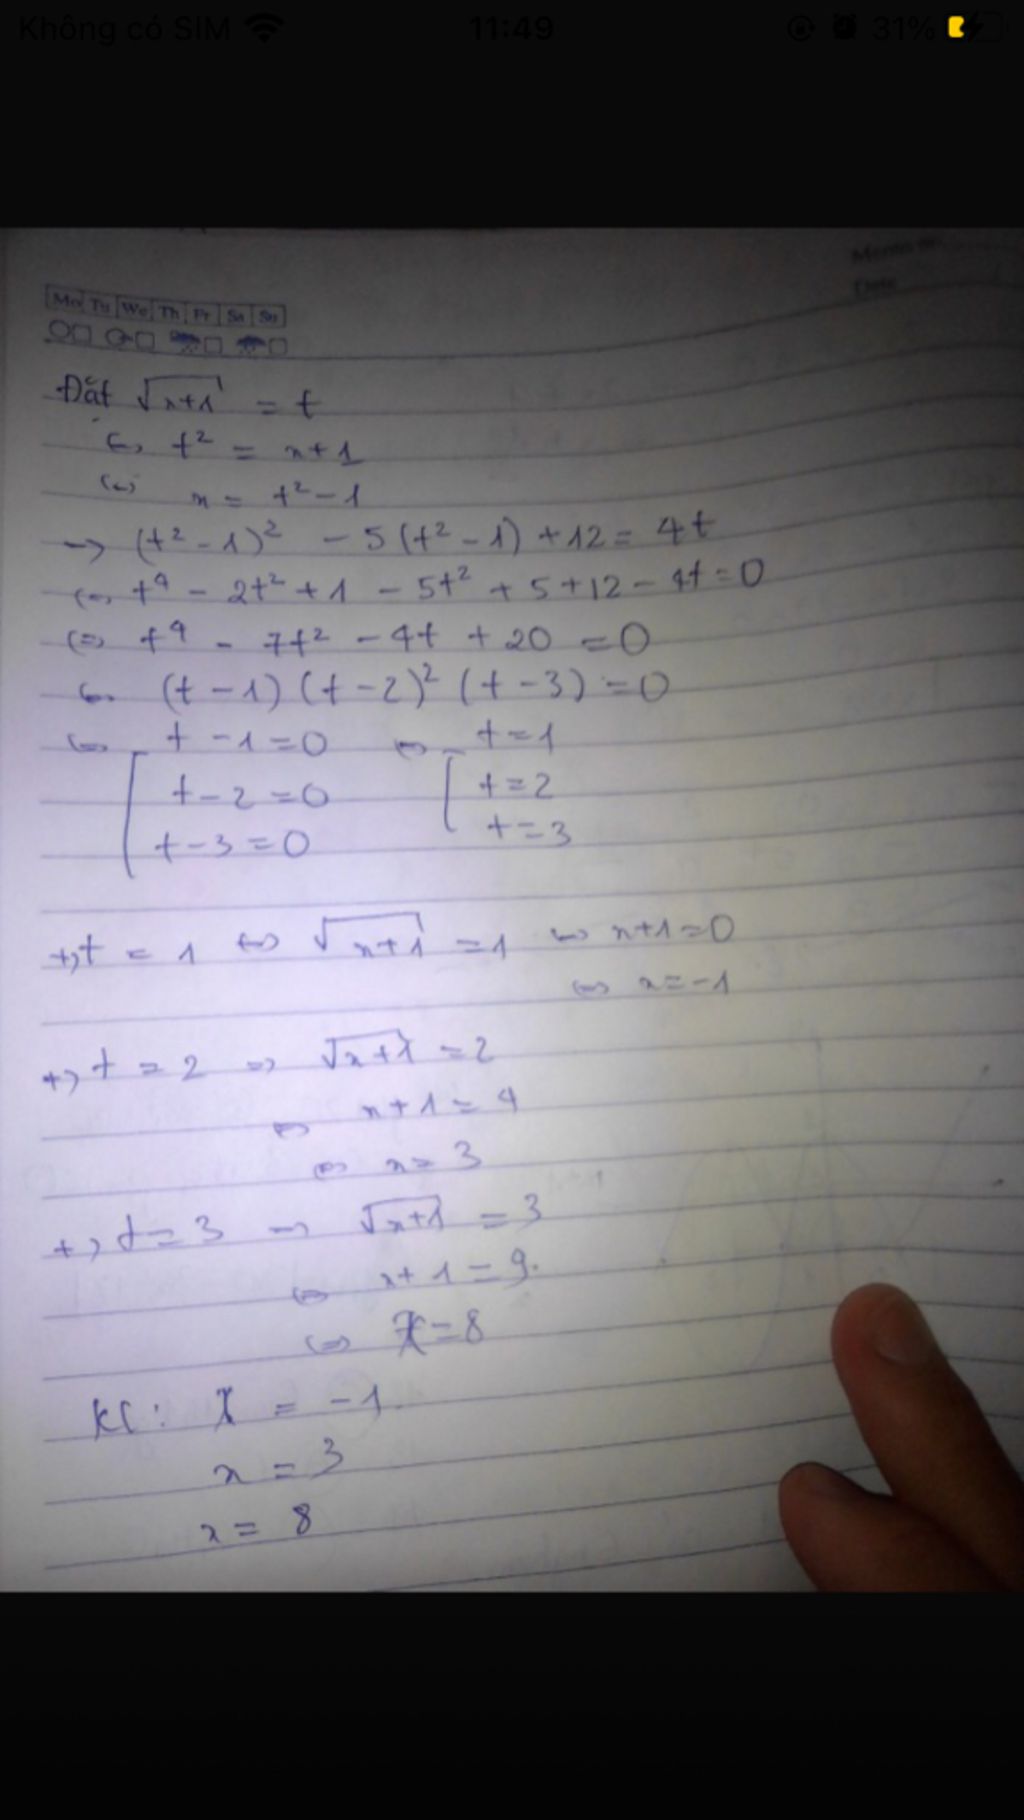 Không có SIM 11:49 31%
Mo Tu We Th Fr Sa Su
Memo No.
Date
Đắt √x+1 = t
(=) t² = x+1
(=) x = t² - 1
-> (t² - 1)² - 5(t² - 1) + 12 = 4t
(=) t⁴ - 2t² + 1 - 5t² + 5 + 12 - 4t = 0
(=) t⁴ - 7t² - 4t + 20 = 0
(=) (t - 1) (t - 2)² (t - 3) = 0
(=) [ t - 1 = 0 (=) [ t = 1
t - 2 = 0 t = 2
t - 3 = 0 t = 3
+, t = 1 (=) √x+1 = 1 (=) x+1 = 0
(=) x = -1
+, t = 2 => √x+1 = 2
(=) x + 1 = 4
(=) x = 3
+, t = 3 => √x+1 = 3
(=) x + 1 = 9.
(=) x = 8
KL: x = -1
x = 3
x = 8